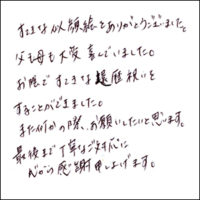 すてきな似顔絵をありがとうございました。
父も母も大変喜んでいました。
お陰ですてきな還暦祝いを
することができました。
また何かの際、お願いしたいと思います。
最後まで丁寧なご対応に
心から感謝申しあげます。